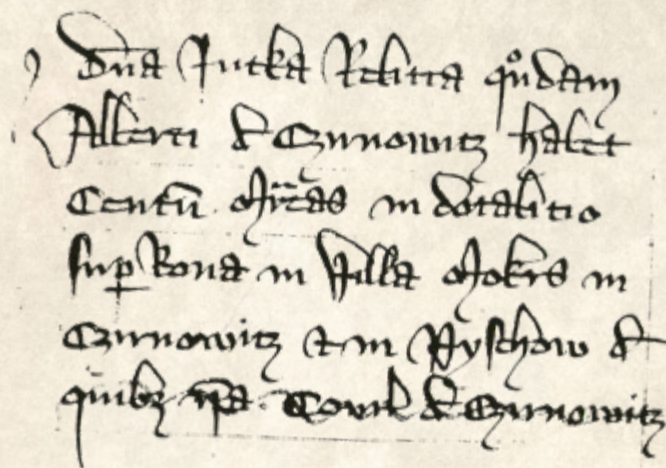 Dna Jutka Relicta qndam
Alberti de Czunowitz habet
Centu mrcas in dotalitio
sup bona in villa Mokrs in
Czunowitz et in Pyschow de
quibz ipa de Czunowitz